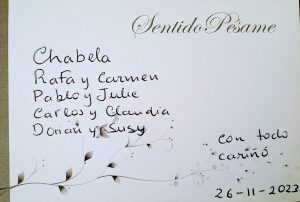 Sentido Pésame
Chabela
Rafa y Carmen
Pablo y Julie
Carlos y Claudia
Dorian y Susy
Con todo
cariño
26-11-2023